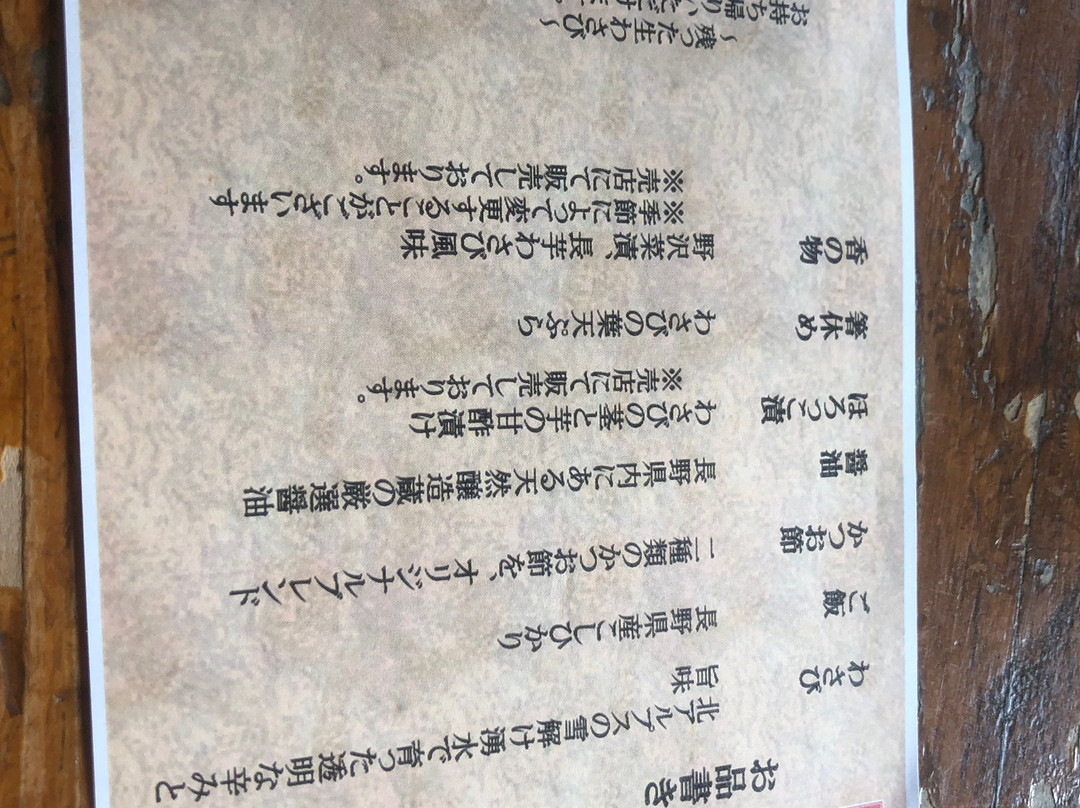 お品書き
わさび
北アルプスの雪解け湧水で育った透明な辛みと
旨味
ご飯
長野県産こしひかり
かつお節
二種類のかつお節を、オリジナルブレンド
醤油
長野県内にある天然醸造蔵の厳選醤油
ほろっこ漬
わさびの茎と芋の甘酢漬け
※売店にて販売しております。
箸休め
わさびの葉天ぷら
香の物
野沢菜漬、長芋わさび風味
※季節によって変更することがございます
※売店にて販売しております。
～残った生わさび～
お持ち帰りいただけます